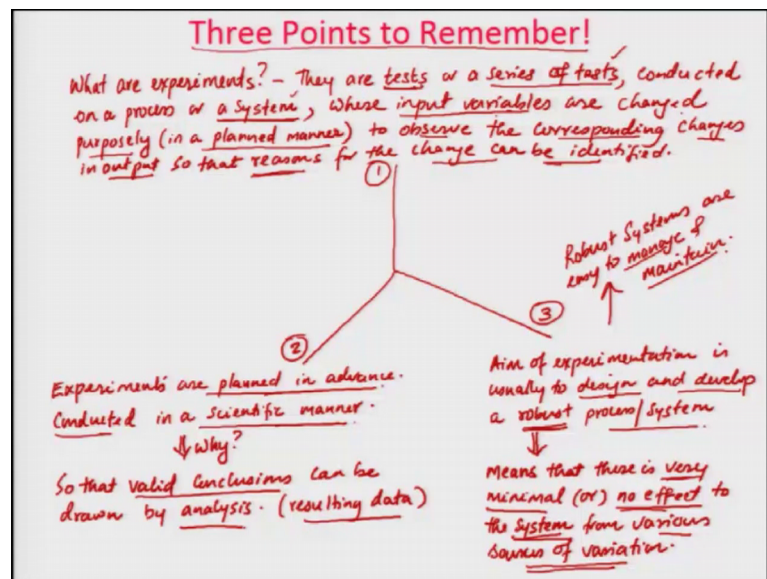 Three Points to Remember!
What are experiments? - They are tests or a series of tests, conducted
on a process or a system, where input variables are changed
purposely (in a planned manner) to observe the corresponding changes
in output so that reasons for the change can be identified.
1
2
Experiments are planned in advance.
Conducted in a scientific manner.
⇓ Why?
So that valid conclusions can be
drawn by analysis. (resulting data)
3
Robust Systems are
easy to manage &
maintain.
Aim of experimentation is
usually to design and develop
a robust process/system
Means that there is very
minimal (or) no effect to
the system from various
sources of variation.